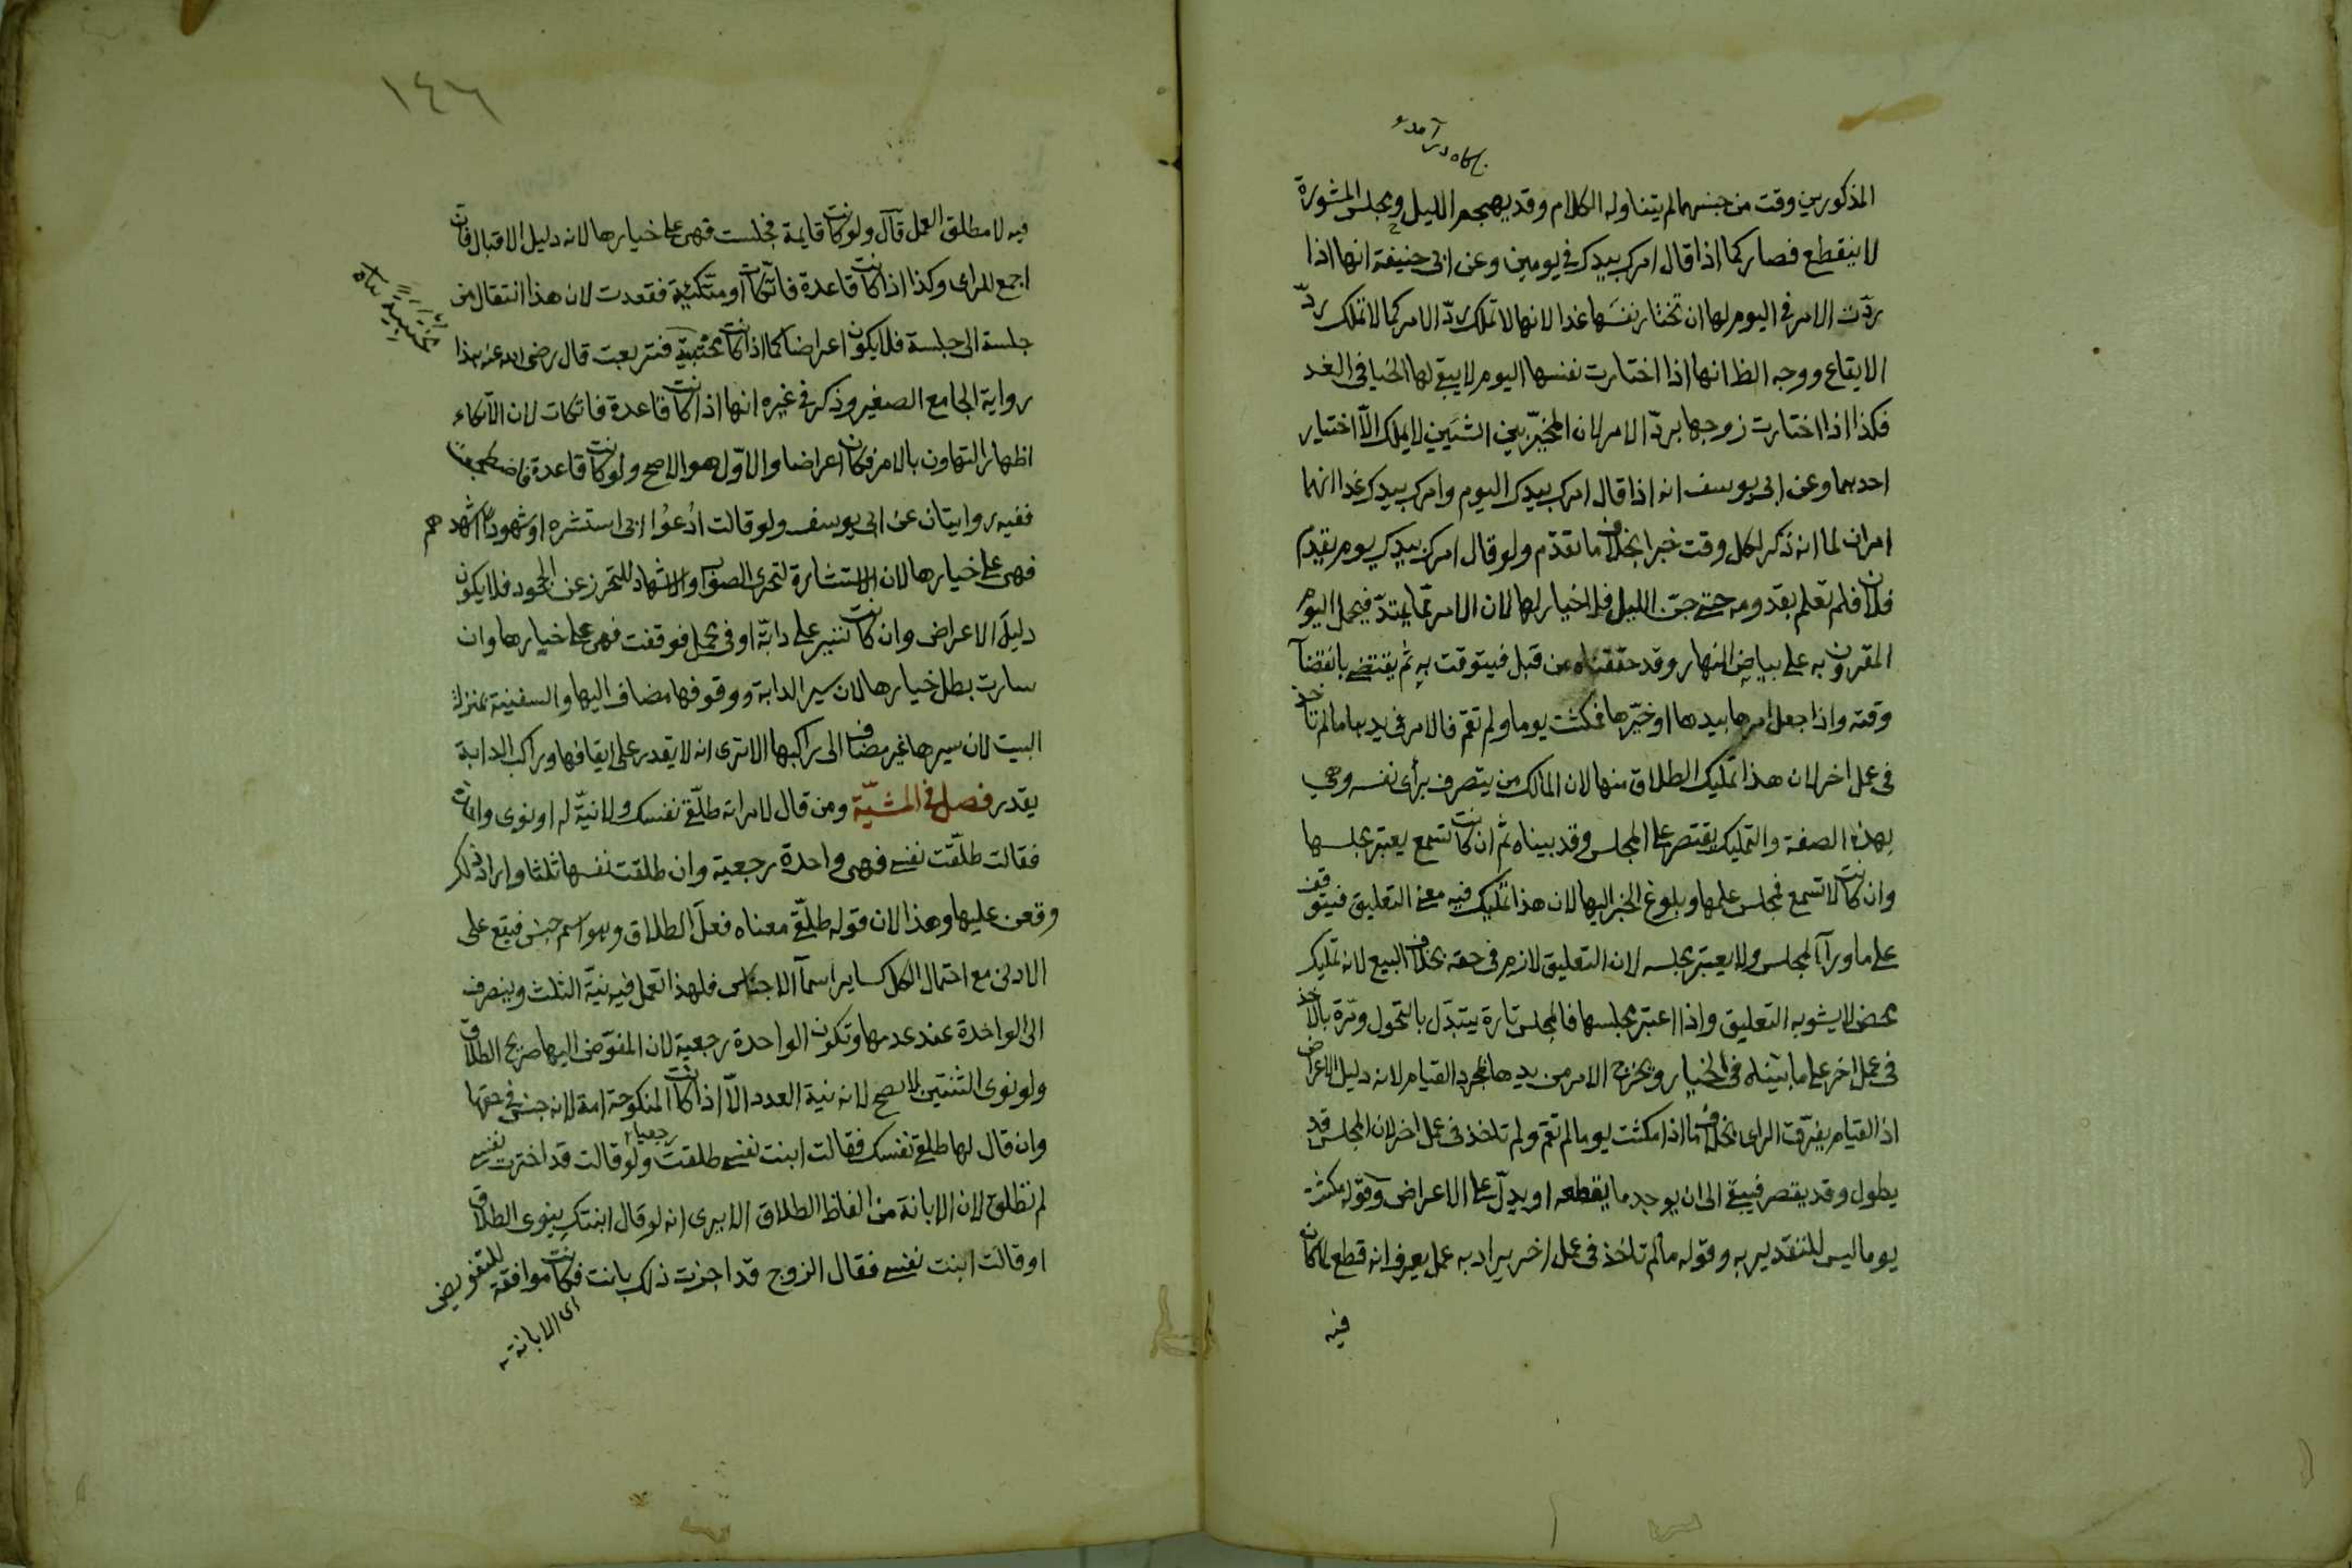 المذكورين وقت من جنسهما لم يتناوله الكلام وقد يهجم الليل ومجلس المشورة
لا ينقطع فصار كما اذا قال امرك بيدك في يومين وعن ابي حنيفة انها اذا
ردّت الامر في اليوم لها ان تختار نفسَها غدا لانها لا تملك ردّ الامر كما لا تملك ردّ
الايقاع ووجه الظ انها اذا اختارت نفسها اليوم لا يبقى لها الخيا في الغد
فكذا اذا اختارت زوجها بردّ الامر لان المخيّر بين الشيئين لا يملك الّا اختيار
احدهما وعن ابي يوسف انه اذا قال امرك بيدك اليوم وامرك بيدك غدا انهما
امران لما انه ذكر لكل وقت خبرا بخلاف ما تقدّم ولو قال امرك بيدك يوم يقدم
فلان فلم تعلم بقدومه حتى جنّ الليل فلا خيار لها لان الامر ممّا يمتدّ فيحمل اليوم
المقرون به على بياض النهار وقد حققناه من قبل فيتوقت به ثم ينقضي بانقضآ
وقته واذا جعل امرها بيدها او خيّرها فمكثت يوما ولم تقم فالامر في يدها ما لم تاخذ
في عمل اخر لان هذا تمليك الطلاق منها لان المالك من يتصرف برأى نفسه وهي
بهذه الصفة والتمليك يقتصر على المجلس وقد بيناه ثم ان كانت تسمع يعتبر مجلسها
وان كانت لا تسمع فمجلس علمها وبلوغ الخبر اليها لان هذا تمليك فيه معنى التعليق فيتوقف
على ما ورآ المجلس ولا يعتبر مجلسه لان التعليق لازم في حقه بخلاف البيع لانه تمليك
محض لا يشوبه التعليق واذا اعتبر مجلسها فالمجلس تارة يتبدّل بالتحول ومرّة بالاخذ
في عمل اخر على ما بيّناه في الخيار ويخرج الامر من يدها بمجرد القيام لانه دليل الاعراض
اذ القيام يفرّق الراى بخلاف ما اذا مكثت يوما لم تقم ولم تاخذ في عمل اخر لان المجلس قد
يطول وقد يقصر فيبقى الى ان يوجد ما يقطعه او يدلّ على الاعراض وقوله مكثت
يوما ليس للتقدير به وقوله ما لم تاخذ في عمل اخر يراد به عمل يعرف انه قطع لما كان
فيه
١٤٦
فيه لا مطلق العمل قآل ولو كانت قايمة فجلست فهى على خيارها لانه دليل الاقبال فان
اجمع للراى وكذا اذا كانت قاعدة فاتّكات او متكئة فقعدت لان هذا انتقال من
جلسة الى جلسة فلا يكون اعراضا كما اذا كانت محتبية فتربعت قال رضى الله عنه هذا
رواية الجامع الصغير وذكر في غيره انها اذا كانت قاعدة فاتكات لان الاتكاء
اظهار التهاون بالامر فكان اعراضا والاوّل هو الاصح ولو كانت قاعدة فاضطجعت
ففيه روايتان عن ابي يوسف ولو قالت ادعُوا ابي استشره او شهودا اشهدهم
فهى على خيارها لان الاستشارة لتحرى الصواب والاشهاد للتحرز عن الجحود فلا يكون
دليلَ الاعراض وان كانت تسير على دابّة او في محمل فوقفت فهى على خيارها وان
سارت بطل خيارها لان سير الدابة ووقوفها مضاف اليها والسفينة بمنزلة
البيت لان سيرها غير مضاف الى راكبها الا ترى انه لا يقدر على ايقافها وراكب الدابة
يقدر فصل في المشيّة ومن قال لامراته طلّقى نفسك ولا نيّة له او نوى واحدة
فقالت طلّقت نفسى فهى واحدة رجعية وان طلقت نفسها ثلثا واراد ذلك
وقعن عليها وهذا لان قوله طلّقى معناه فعل الطلاق وهو اسم جنس فيقع على
الادنى مع احتمال الكل كساير اسمآ الاجناس فلهذا تعمل فيه نيّة الثلث وينصرف
الى الواحدة عند عدمها وتكون الواحدة رجعية لان المفوّض اليها صريح الطلاق
ولو نوى الثنتين لا يصح لانه نية العدد الّا اذا كانت المنكوحة امة لانه جنس في حقها
وان قال لها طلقى نفسك فقالت ابنت نفسى طلقت رجعيا ولو قالت قد اخترت نفسى
لم تطلق لان الابانة من الفاظ الطلاق الا يرى انه لو قال ابنتك ينوى الطلاق
او قالت ابنت نفسى فقال الزوج قد اجزت ذلك بانت فكانت موافقة للتفويض
اى الابانة